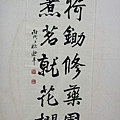 荷鋤修藥圃
煮茗就花欄